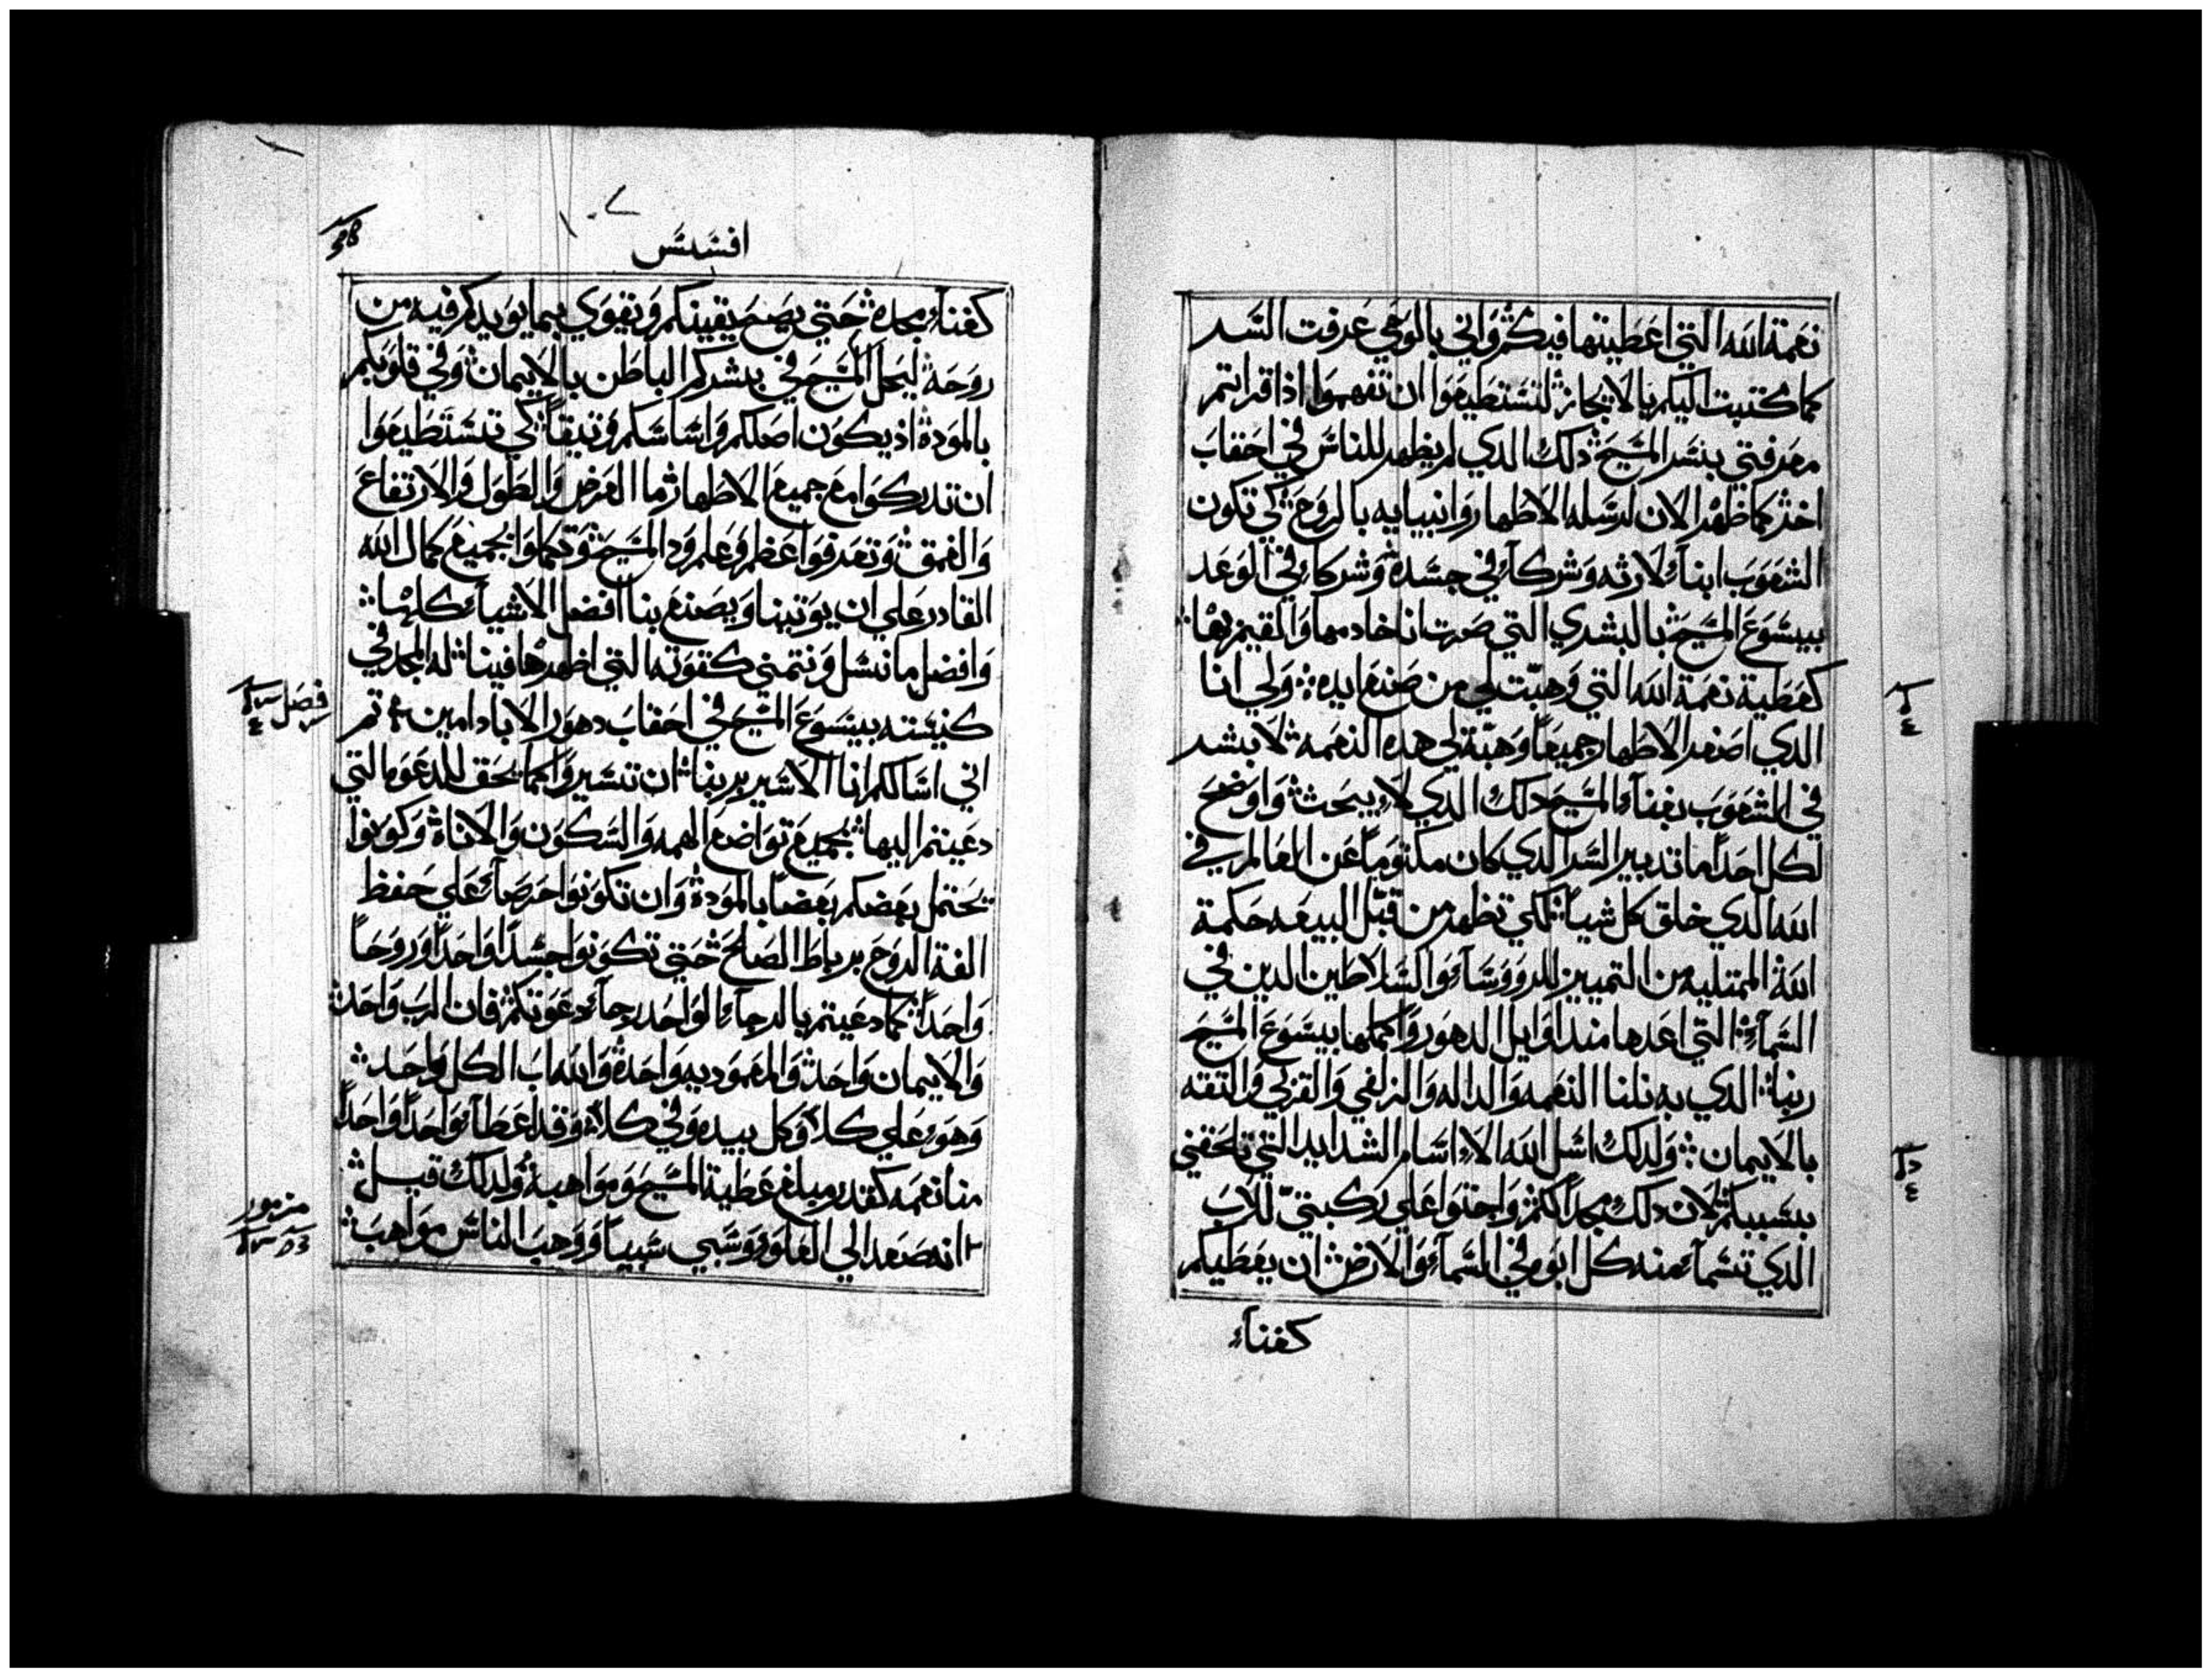 نعمة الله التي اعطيتها فيكم واني بالوحي عرفت السر
كما كتبت اليكم بالايجاز لتستطيعوا ان تفهموا اذا قراتم
معرفتي بسر المسيح دلك الدي لم يظهر للناس في احقاب
اخر كما ظهر الان لرسله الاطهار وانبيايه بالروح كي تكون
الشعوب ابناء لارثه وشركاء في جسده وشركاء في الوعد
بيسوع المسيح بالبشري التي صرت انا خادمها والمقيم بها
كعطية نعمة الله التي وهبت لي من صنع ايده ولي انا
الدي اصغر الاطهار جميعا وهبة لي هده النعمه لابشر
في الشعوب بغناء المسيح دلك الدي لا يبحث واوضح
لكل احدا ما تدبير السر الدي كان مكتوما عن العالم في
الله الدي خلق كل شيا لكي تظهر من قبل البيعه حكمة
الله الممتليه من التمييز للرووساء والسلاطين الدين في
السماء التي اعدها مند اوايل الدهور واكملها بيسوع المسيح
ربنا الدي به نلنا النعمه والداله والزلفي والقربي والثقه
بالايمان ولدلك اسل الله الا اسام الشدايد التي تلحقني
بسببكم لان دلك مجدا لكم واجثوا علي ركبتي للاب
الدي تسماء منه كل ابوه في السماء والارض ان يعطيكم
كغناء
افسس
كغناء مجده حتي يصح يقينكم ونقوي بما يويدكم فيه من
روحه ليحل المسيح في بشركم الباطن بالايمان وفي قلوبكم
بالموده اد يكون اصلكم واساسكم وتيقا كي تستطيعوا
ان تدركوا مع جميع الاطهار ما العرض والطول والارتفاع
والعمق وتعرفوا عظم وعلم ود المسيح وتكملوا بجميع كمال الله
القادر علي ان يوتينا ويصنع بنا افضل الاشياء كلها
وافضل ما نسل ونتمني كقوته التي اظهرها فينا له المجد في
كنيسته بيسوع المسيح في احقاب دهور الاباد امين ثم
اني اسالكم انا الاسير بربنا ان تسيروا كما يحق للدعوه التي
دعيتم اليها بجميع تواضع الهمه والسكون والاناة وكونوا
يحتمل بعضكم بعضا بالموده وان تكونوا حرصاء علي حفظ
الفة الروح برباط الصلح حتي تكونوا جسدا واحدا وروحا
واحدا كما دعيتم بالرجاء الواحد رجاء دعوتكم فان الرب واحد
والايمان واحد والمعموديه واحده والله اب الكل واحد
وهو علي كلا وكل بيده وفي كلا وقد اعطاء واحدا واحدا
منا نعمه كقدر مبلغ عطية المسيح ومواهبه ولدلك قيل
انه صعد الي العلو وسبي سبيا ووهب الناس مواهب
فصل
مزمور